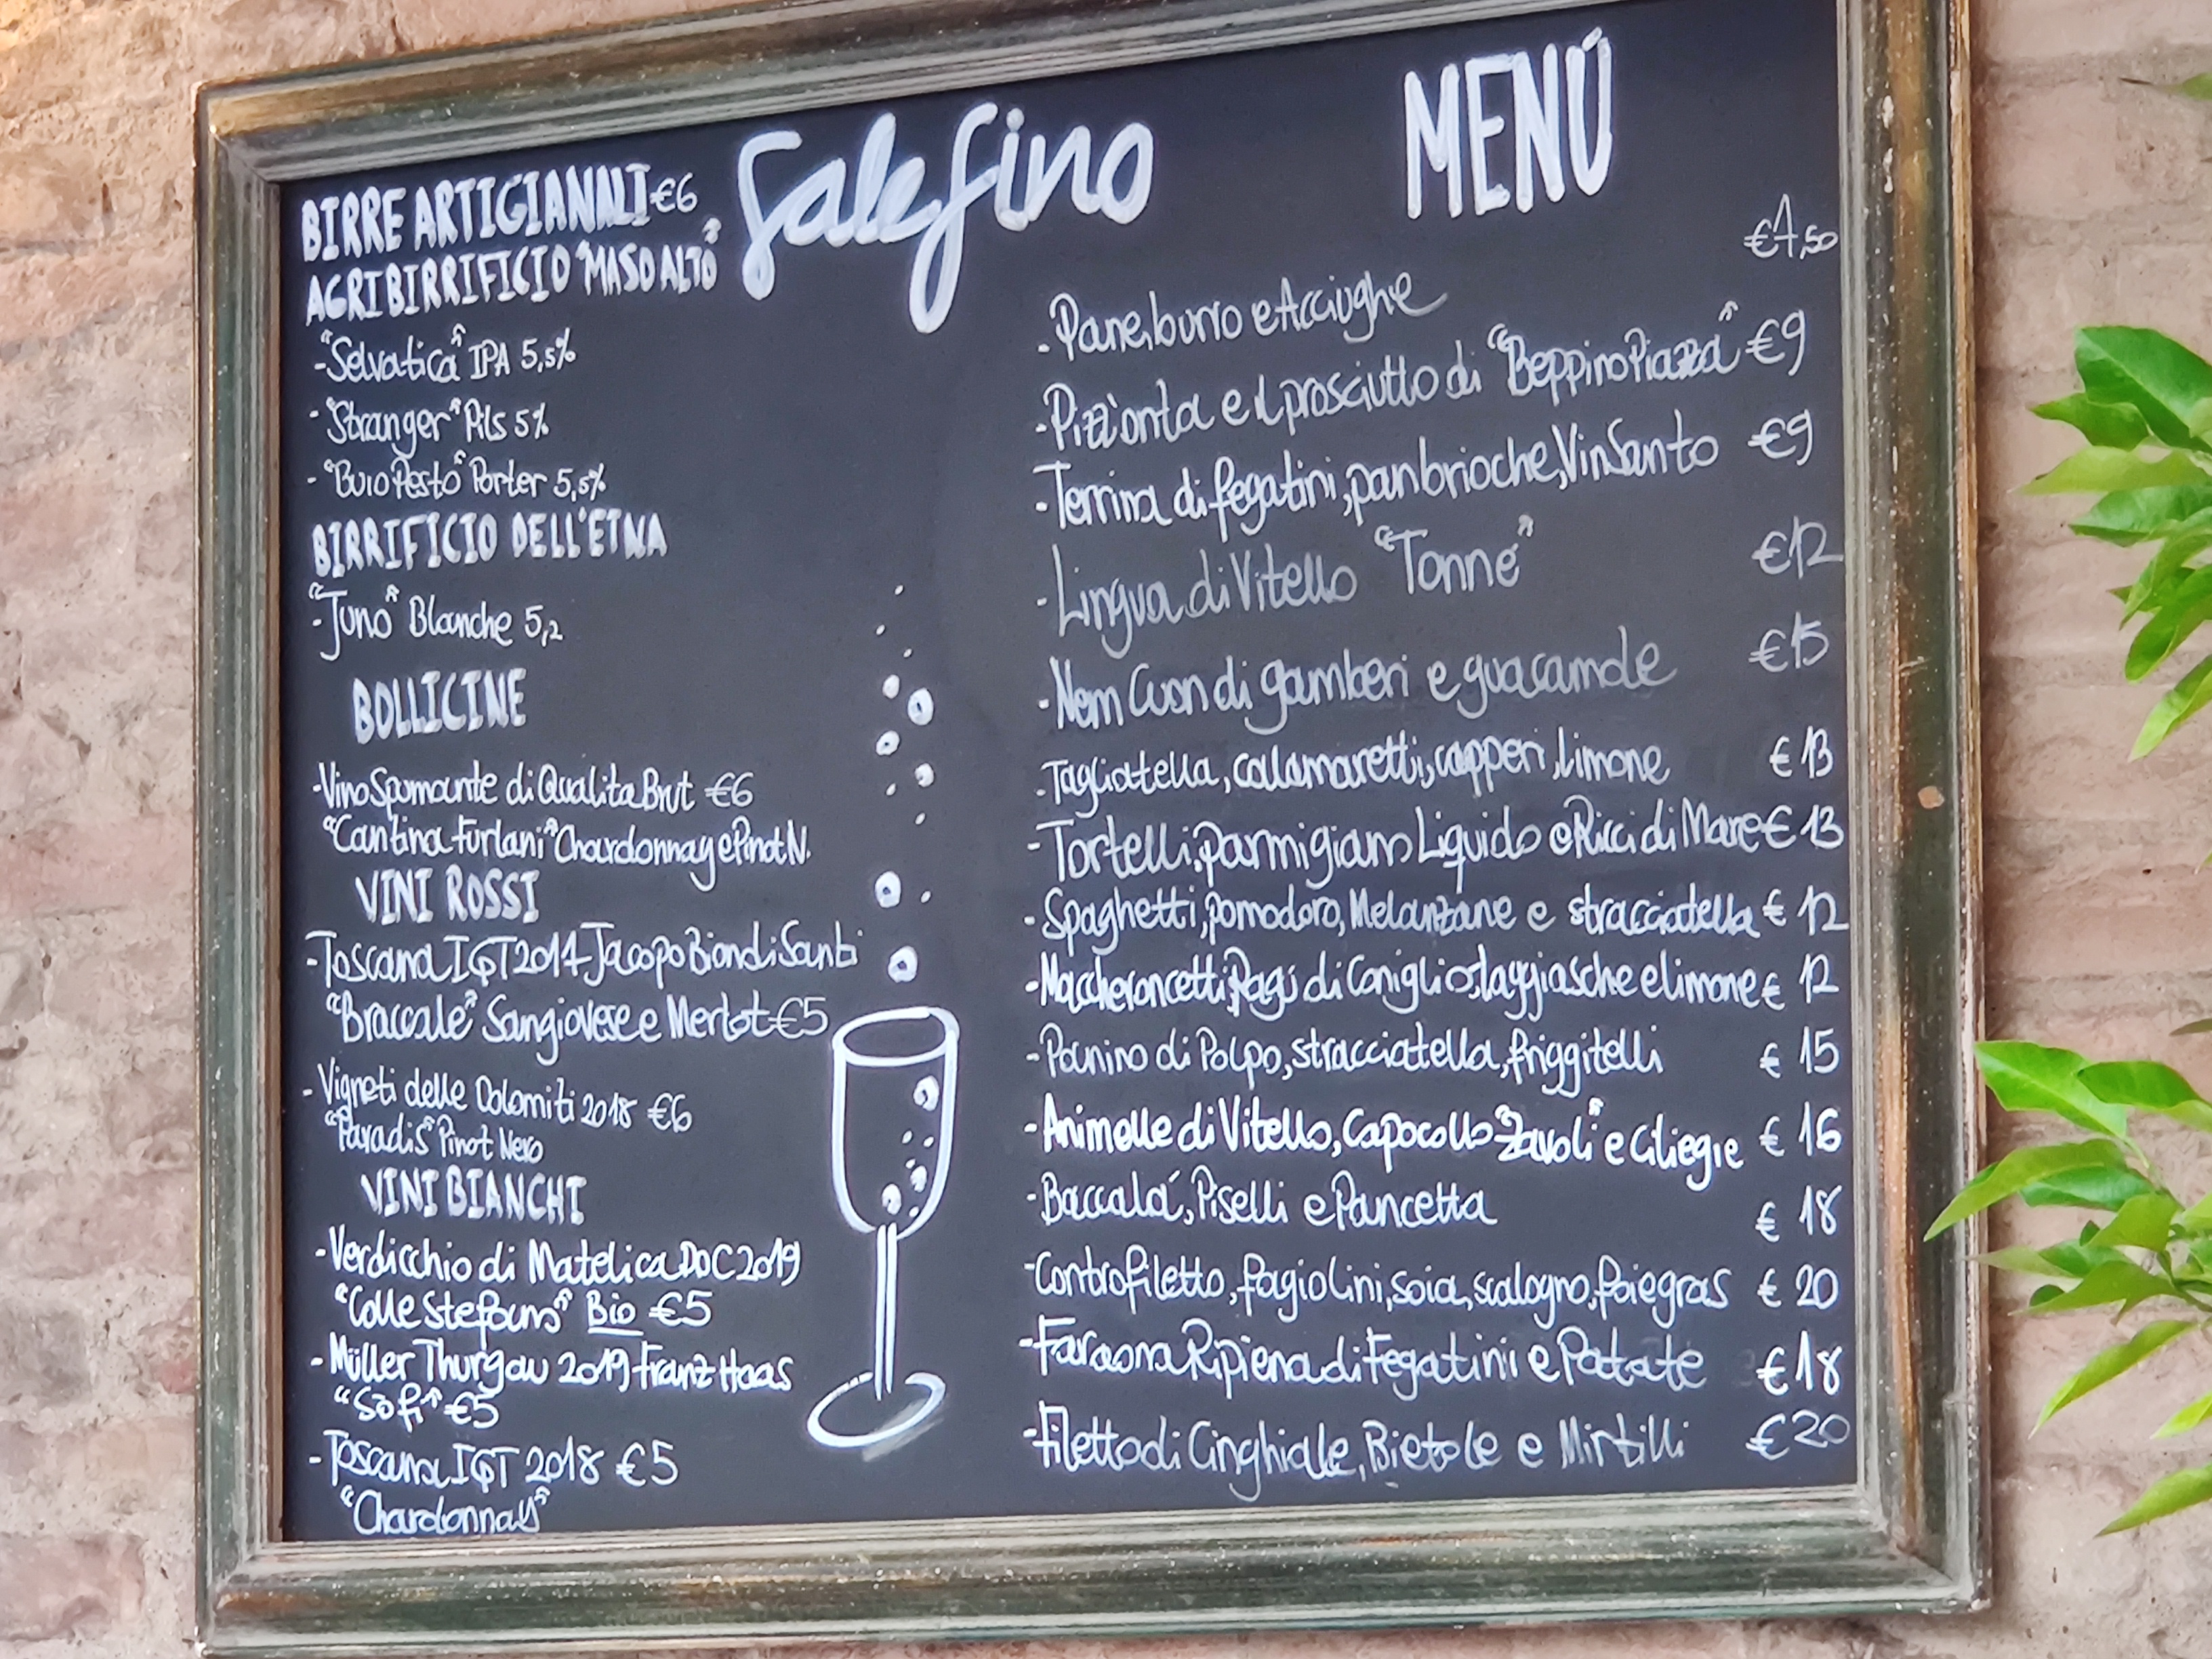 Salefino
MENÚ
BIRRE ARTIGIANALI €6
AGRIBIRRIFICIO "MASO ALTO"
- "Selvatica" IPA 5,5%
- "Stranger" Pils 5%
- "Buio Pesto" Porter 5,5%
BIRRIFICIO DELL'ETNA
- "Juno" Blanche 5,2
BOLLICINE
- Vino Spumante di Qualita Brut €6
"Cantina Furlani" Chardonnay e Pinot N.
VINI ROSSI
- Toscana IGT 2017 Jacopo Biondi Santi
"Braccale" Sangiovese e Merlot €5
- Vigneti delle Dolomiti 2018 €6
"Paradis" Pinot Nero
VINI BIANCHI
- Verdicchio di Matelica DOC 2019
"Colle Stefano" Bio €5
- Müller Thurgau 2019 Franz Haas
"Sofi" €5
- Toscana IGT 2018 €5
"Chardonnay"
- Pane, burro e Acciughe €7,50
- Pizz'onta e il prosciutto di "Beppino Piazza" €9
- Terrina di fegatini, panbrioche, VinSanto €9
- Lingua di Vitello "Tonné" €12
- Nem Cuon di gamberi e guacamole €15
- Tagliatella, calamaretti, capperi, limone €13
- Tortelli, parmigiano Liquido e Ricci di Mare €13
- Spaghetti, pomodoro, Melanzane e stracciatella €12
- Maccheroncetti, Ragú di Coniglio, taggiasche e limone €12
- Panino di Polpo, stracciatella, friggitelli €15
- Animelle di Vitello, Capocollo "Zavoli" e Ciliegie €16
- Baccalá, Piselli e Pancetta €18
- Controfiletto, fagiolini, soia, scalogno, foiegras €20
- Faraona Ripiena di Fegatini e Patate €18
- Filetto di Cinghiale, Bietole e Mirtilli €20